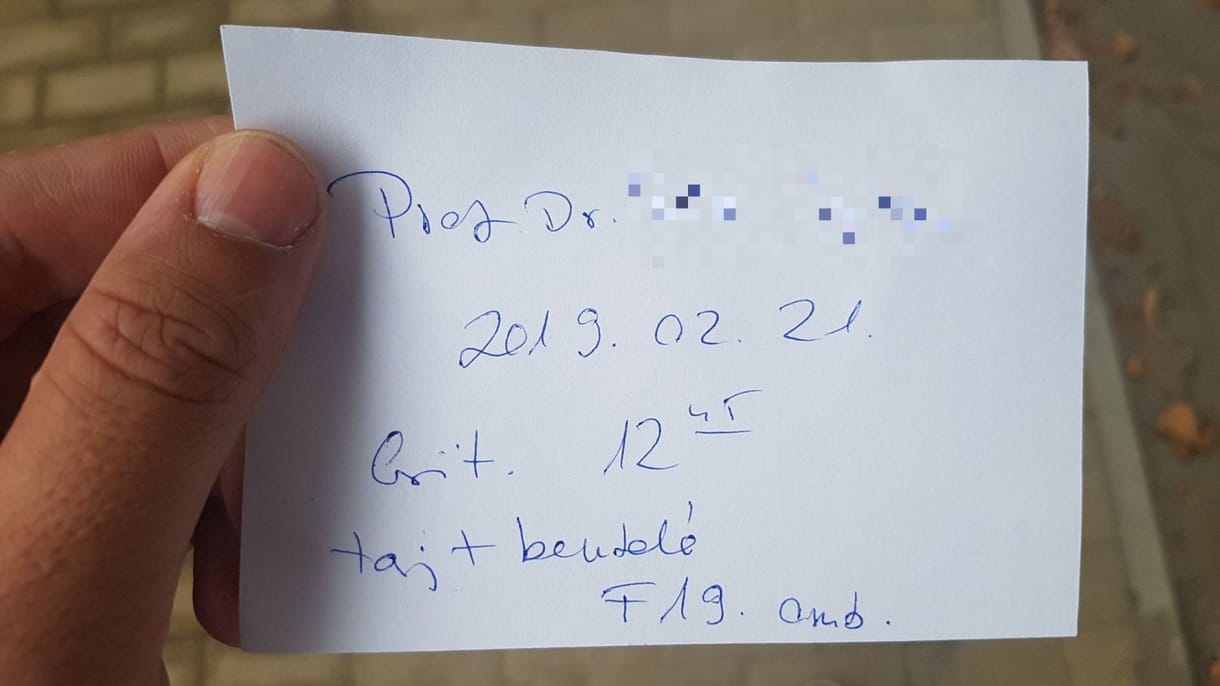 Prof Dr.
2019. 02. 21.
Csüt. 12 45
taj + beutaló
F19. amb.